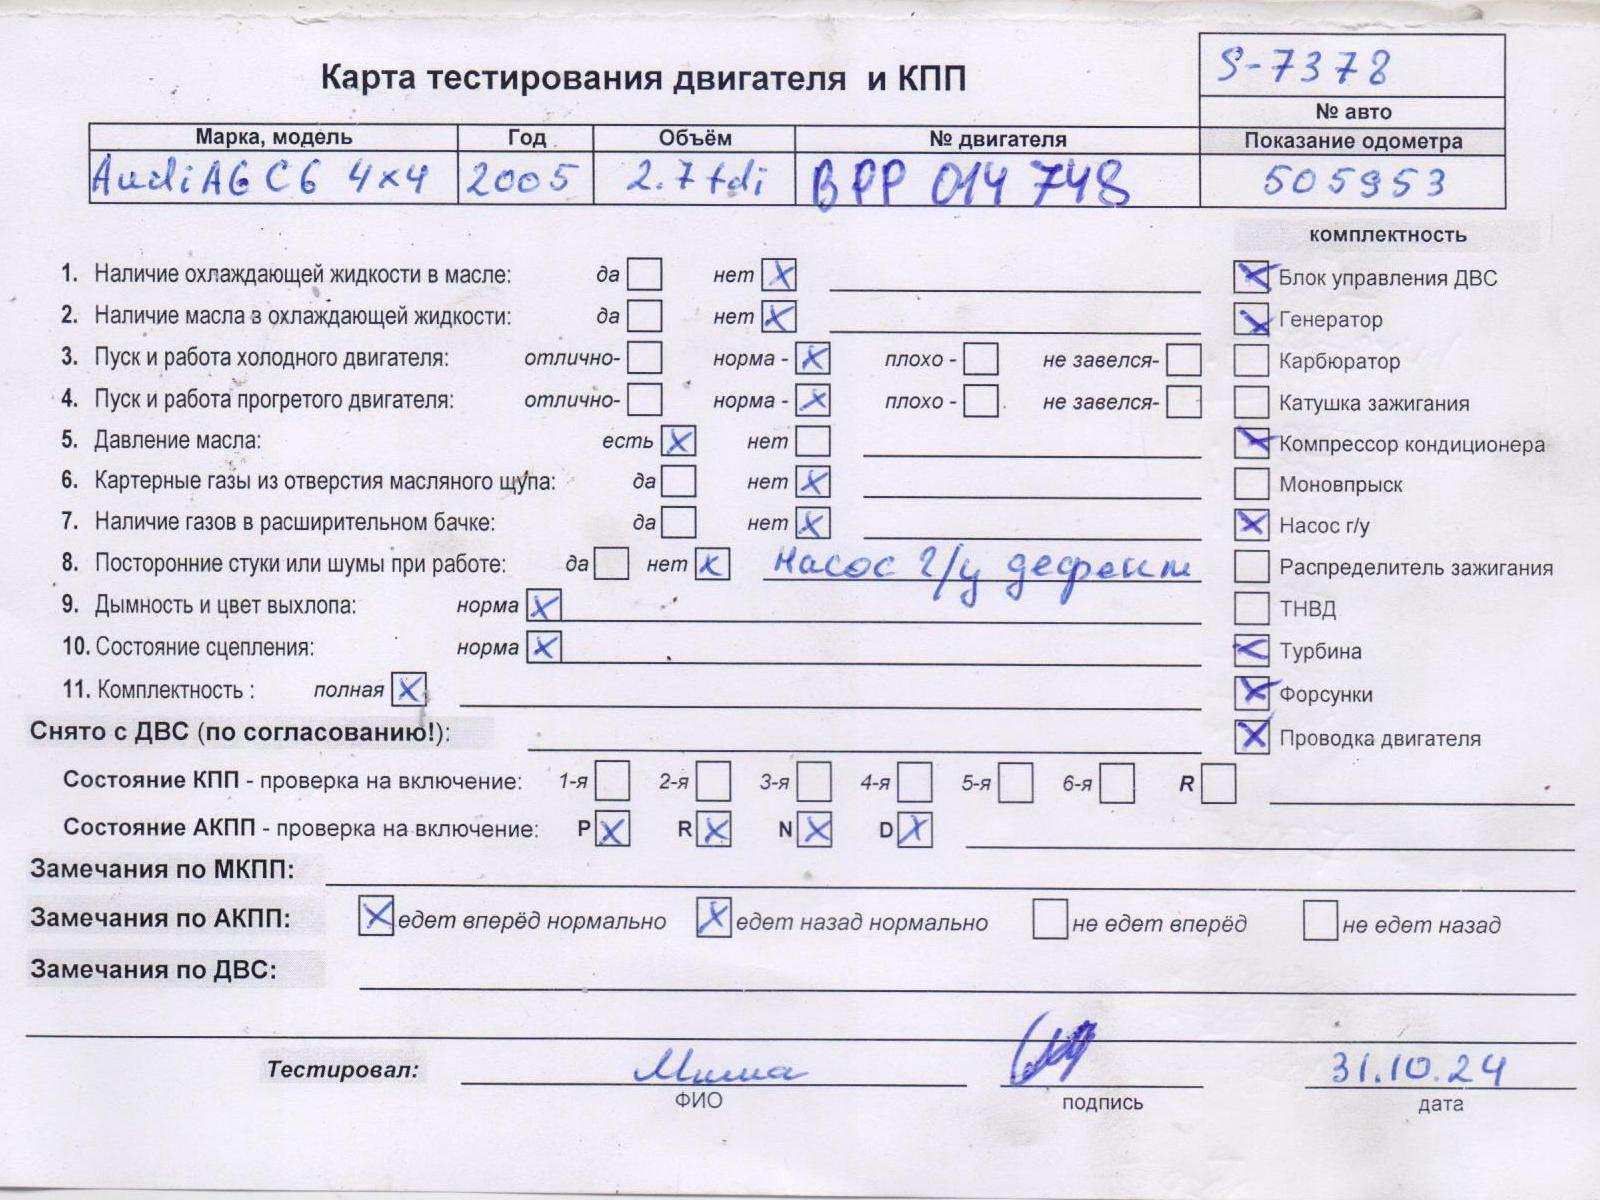 S-7378
Карта тестирования двигателя и КПП
№ авто
Марка, модель Год Объём № двигателя Показание одометра
Audi A6 C6 4x4 2005 2.7 tdi BPP 014 748 505953
комплектность
1. Наличие охлаждающей жидкости в масле: да нет X Блок управления ДВС
2. Наличие масла в охлаждающей жидкости: да нет X Генератор
3. Пуск и работа холодного двигателя: отлично- норма - X плохо - не завелся- Карбюратор
4. Пуск и работа прогретого двигателя: отлично- норма - X плохо - не завелся- Катушка зажигания
5. Давление масла: есть X нет X Компрессор кондиционера
6. Картерные газы из отверстия масляного щупа: да нет X Моновпрыск
7. Наличие газов в расширительном бачке: да нет X X Насос г/у
8. Посторонние стуки или шумы при работе: да нет X Насос г/у дефект Распределитель зажигания
9. Дымность и цвет выхлопа: норма X ТНВД
10. Состояние сцепления: норма X Турбина
11. Комплектность : полная X X Форсунки
Снято с ДВС (по согласованию!): X Проводка двигателя
Состояние КПП - проверка на включение: 1-я 2-я 3-я 4-я 5-я 6-я R
Состояние АКПП - проверка на включение: P X R X N X D X
Замечания по МКПП:
Замечания по АКПП: X едет вперёд нормально X едет назад нормально не едет вперёд не едет назад
Замечания по ДВС:
Тестировал: Миша 31.10.24
ФИО подпись дата